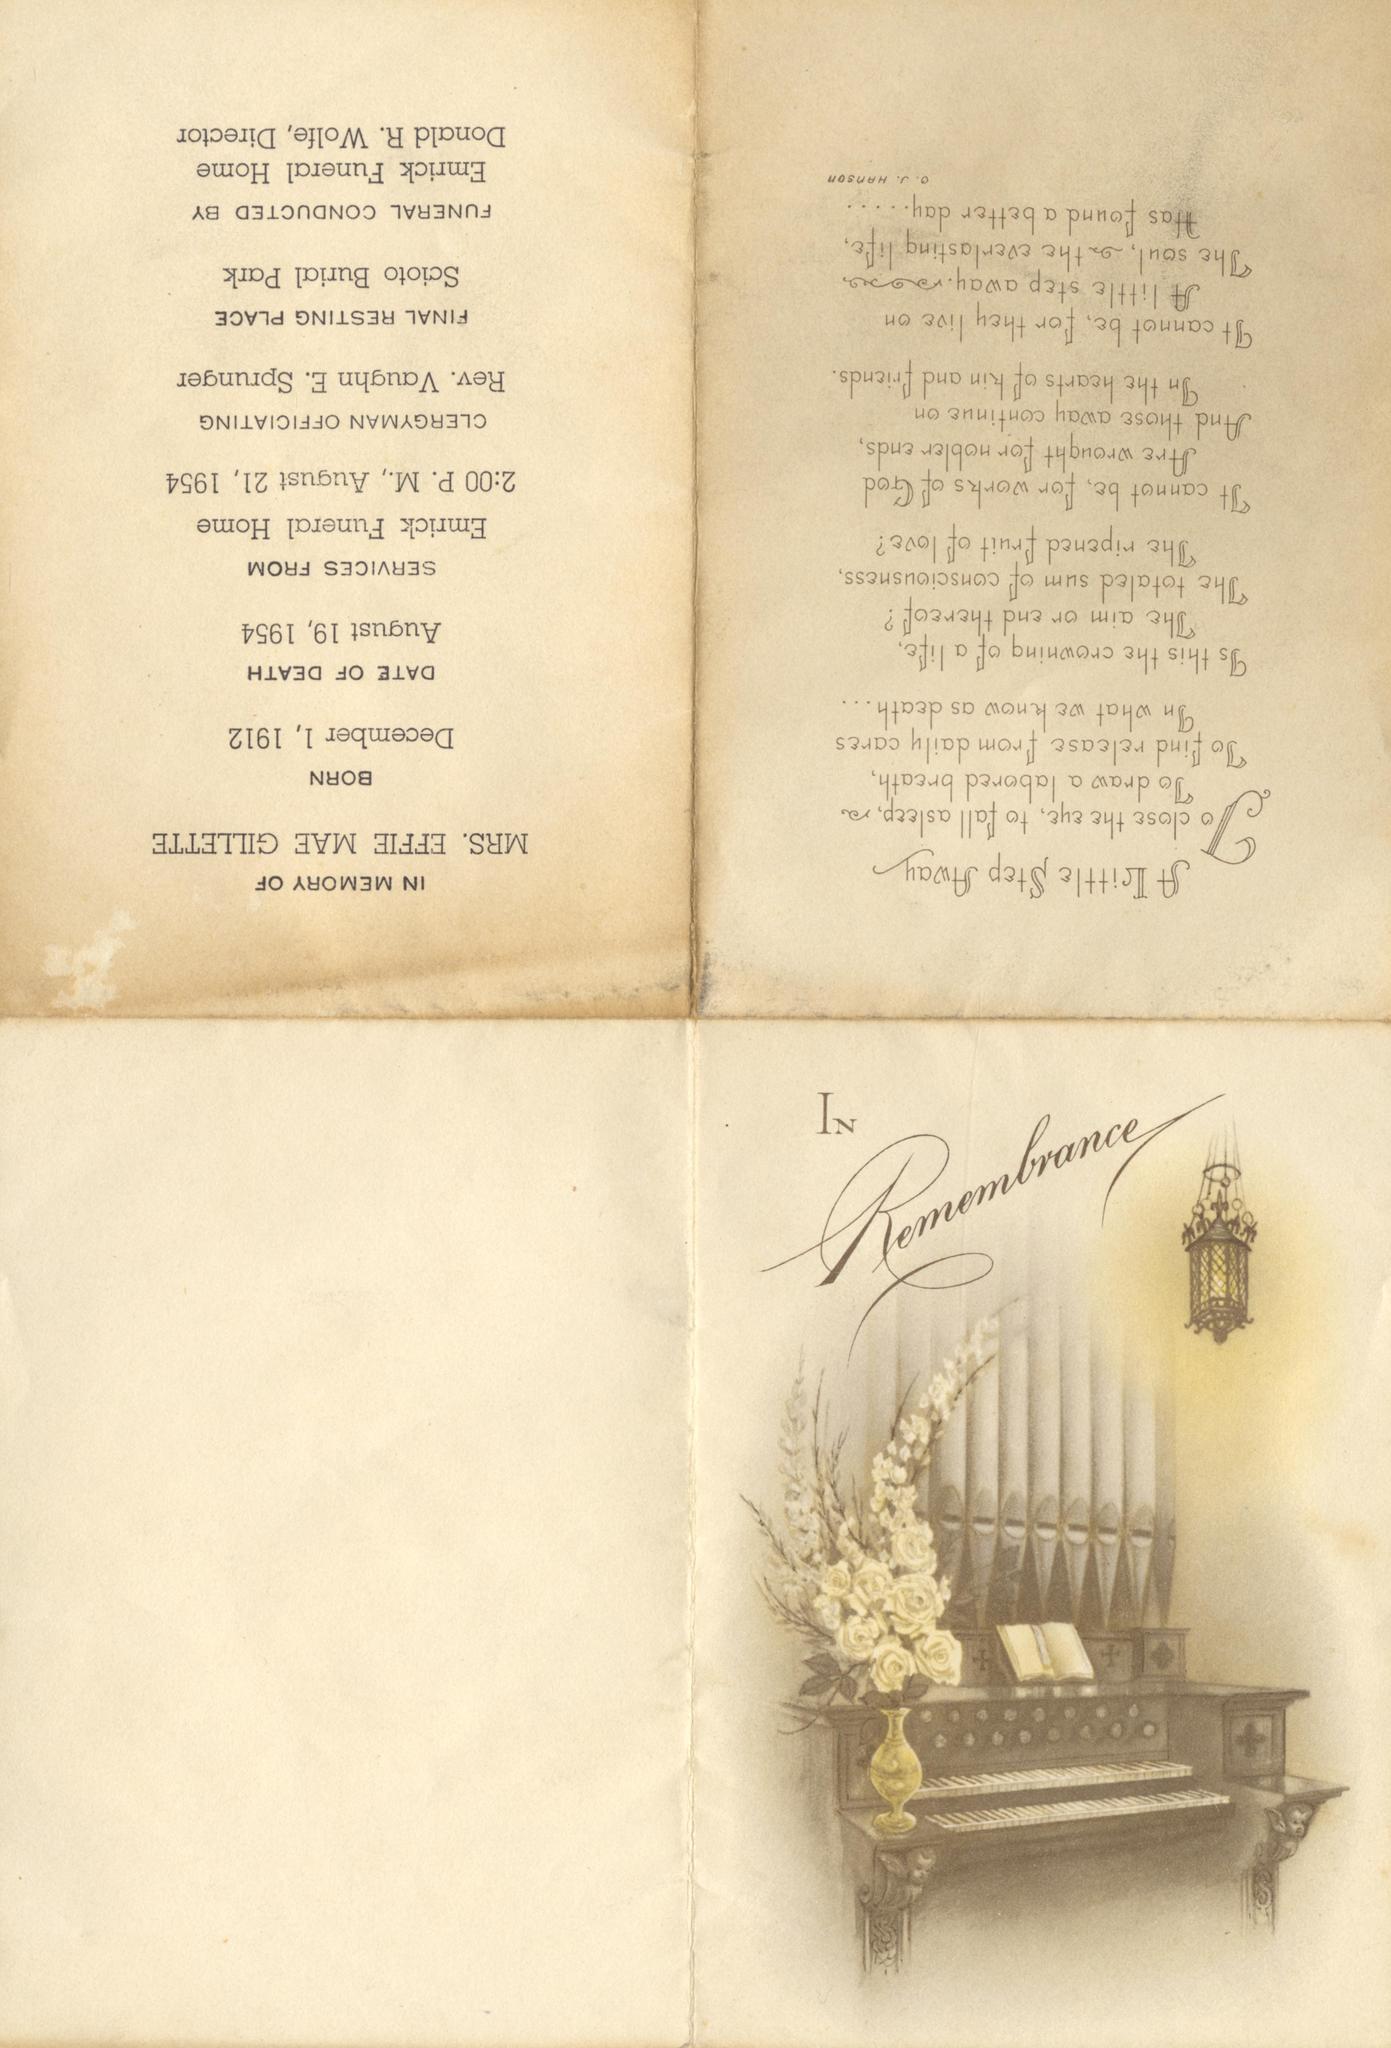 In
Remembrance
A Little Step Away
To close the eye, to fall asleep,
To draw a labored breath,
To find release from daily cares
In what we know as death...
Is this the crowning of a life,
The aim or end thereof?
The totaled sum of consciousness,
The ripened fruit of love?
It cannot be, for works of God
Are wrought for nobler ends,
And those away continue on
In the hearts of kin and friends.
It cannot be, for they live on
A little step away.
The soul, the everlasting life,
Has found a better day.....
O. J. HANSON
IN MEMORY OF
MRS. EFFIE MAE GILLETTE
BORN
December 1, 1912
DATE OF DEATH
August 19, 1954
SERVICES FROM
Emrick Funeral Home
2:00 P. M., August 21, 1954
CLERGYMAN OFFICIATING
Rev. Vaughn E. Sprunger
FINAL RESTING PLACE
Scioto Burial Park
FUNERAL CONDUCTED BY
Emrick Funeral Home
Donald R. Wolfe, Director